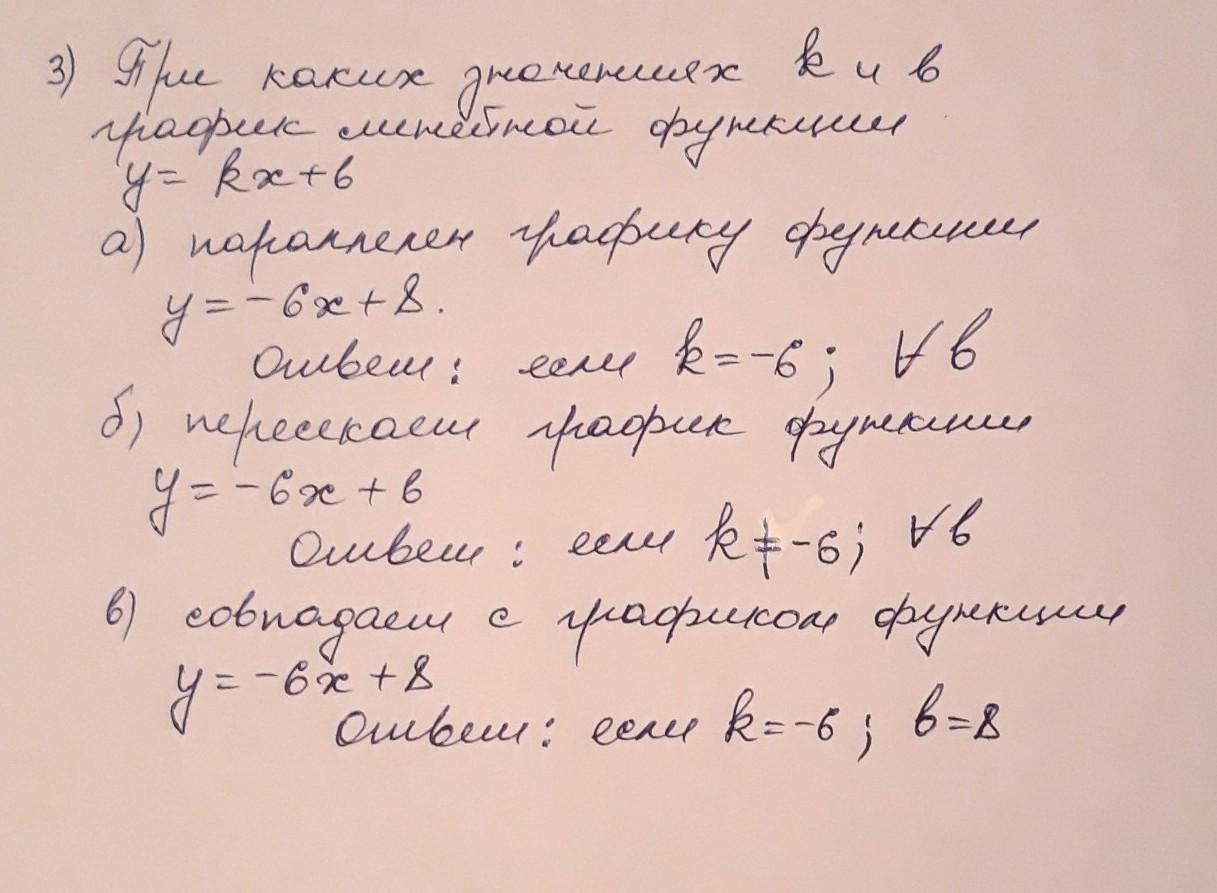 3) При каких значениях k и в
график линейной функции
y = kx + в
а) параллелен графику функции
y = -6x + 8.
Ответ: если k = -6; ∀ в
б) пересекает график функции
y = -6x + в
Ответ: если k ≠ -6; ∀ в
в) совпадает с графиком функции
y = -6x + 8
Ответ: если k = -6; в = 8